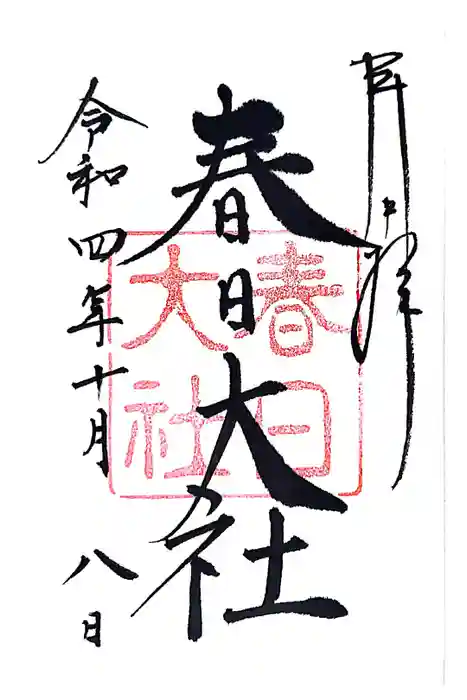 奉拝
春日大社
春日大社
令和四年十月八日